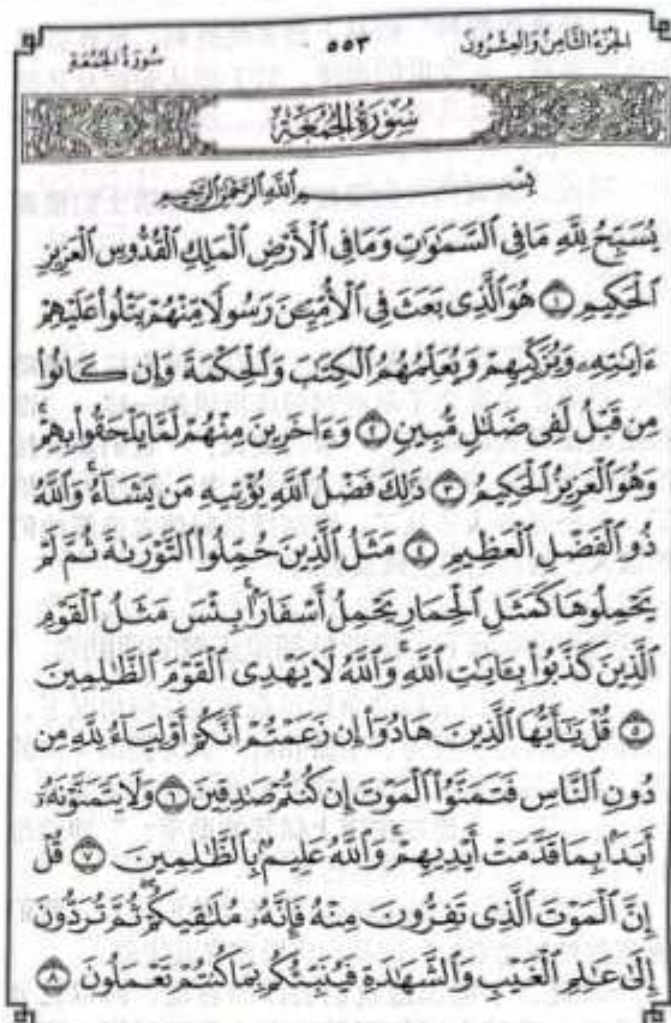 الجزء الثامن والعشرون ٥٥٣ سورة الجمعة
سورة الجمعة
بِسْمِ اللَّهِ الرَّحْمَٰنِ الرَّحِيمِ
يُسَبِّحُ لِلَّهِ مَا فِي السَّمَٰوَٰتِ وَمَا فِي الْأَرْضِ الْمَلِكِ الْقُدُّوسِ الْعَزِيزِ
الْحَكِيمِ ١ هُوَ الَّذِى بَعَثَ فِي الْأُمِّيِّـۧنَ رَسُولًا مِّنْهُمْ يَتْلُوا۟ عَلَيْهِمْ
ءَايَٰتِهِۦ وَيُزَكِّيهِمْ وَيُعَلِّمُهُمُ الْكِتَٰبَ وَالْحِكْمَةَ وَإِن كَانُوا۟
مِن قَبْلُ لَفِى ضَلَٰلٍ مُّبِينٍ ٢ وَءَاخَرِينَ مِنْهُمْ لَمَّا يَلْحَقُوا۟ بِهِمْ ۚ
وَهُوَ الْعَزِيزُ الْحَكِيمُ ٣ ذَٰلِكَ فَضْلُ اللَّهِ يُؤْتِيهِ مَن يَشَآءُ ۚ وَاللَّهُ
ذُو الْفَضْلِ الْعَظِيمِ ٤ مَثَلُ الَّذِينَ حُمِّلُوا۟ التَّوْرَىٰةَ ثُمَّ لَمْ
يَحْمِلُوهَا كَمَثَلِ الْحِمَارِ يَحْمِلُ أَسْفَارًۢا ۚ بِئْسَ مَثَلُ الْقَوْمِ
الَّذِينَ كَذَّبُوا۟ بِـَٔايَٰتِ اللَّهِ ۚ وَاللَّهُ لَا يَهْدِى الْقَوْمَ الظَّٰلِمِينَ
٥ قُلْ يَٰٓأَيُّهَا الَّذِينَ هَادُوٓا۟ إِن زَعَمْتُمْ أَنَّكُمْ أَوْلِيَآءُ لِلَّهِ مِن
دُونِ النَّاسِ فَتَمَنَّوُا۟ الْمَوْتَ إِن كُنتُمْ صَٰدِقِينَ ٦ وَلَا يَتَمَنَّوْنَهُۥٓ
أَبَدًۢا بِمَا قَدَّمَتْ أَيْدِيهِمْ ۚ وَاللَّهُ عَلِيمٌۢ بِالظَّٰلِمِينَ ٧ قُلْ
إِنَّ الْمَوْتَ الَّذِى تَفِرُّونَ مِنْهُ فَإِنَّهُۥ مُلَٰقِيكُمْ ۖ ثُمَّ تُرَدُّونَ
إِلَىٰ عَٰلِمِ الْغَيْبِ وَالشَّهَٰدَةِ فَيُنَبِّئُكُم بِمَا كُنتُمْ تَعْمَلُونَ ٨